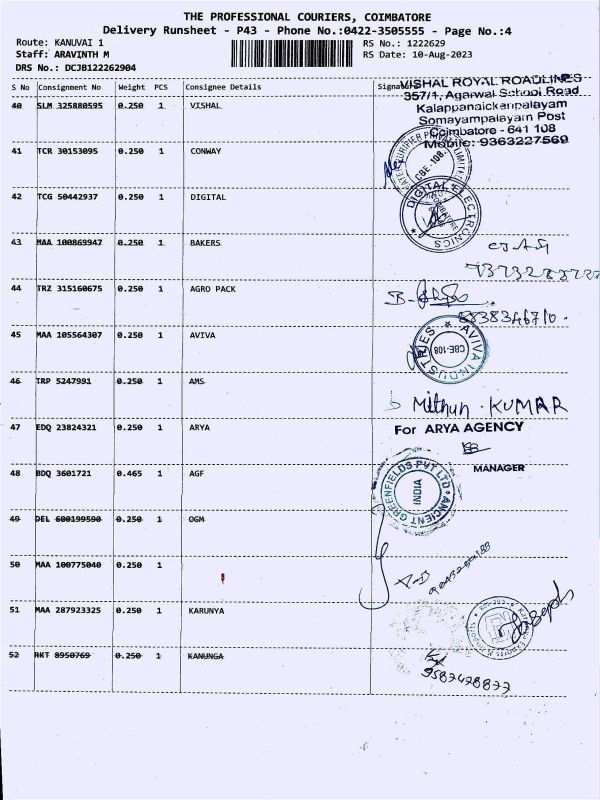 THE PROFESSIONAL COURIERS, COIMBATORE
Delivery Runsheet - P43 - Phone No.:0422-3505555 - Page No.:4
Route: KANUVAI 1 RS No.: 1222629
Staff: ARAVINTH M RS Date: 10-Aug-2023
DRS No.: DCJB122262904
S No Consignment No Weight PCS Consignee Details Signature
VISHAL ROYAL ROADLINES
357/1, Agarwal School Road
Kalappanaickenpalayam
Somayampalayam Post
Coimbatore - 641 108
Mobile: 9363227569
40 SLM 325880595 0.250 1 VISHAL
41 TCR 30153095 0.250 1 CONWAY
PURIFIER PRIVATE LIMITED
CBE-108.
42 TCG 50442937 0.250 1 DIGITAL
DIGITAL ELECTRONICS
43 MAA 100869947 0.250 1 BAKERS
44 TRZ 315160675 0.250 1 AGRO PACK
8838346710.
45 MAA 105564307 0.250 1 AVIVA
AVIVA INDUSTRIES
CBE-108
46 TRP 5247991 0.250 1 AMS
Mithun . KUMAR
47 EDQ 23824321 0.250 1 ARYA
For ARYA AGENCY
MANAGER
48 BDQ 3601721 0.465 1 AGF
ANCIENT GREENFIELDS PVT LTD
INDIA
49 DEL 600199590 0.250 1 OGM
50 MAA 100775040 0.250 1
51 MAA 287923325 0.250 1 KARUNYA
52 RKT 8950769 0.250 1 KANUNGA